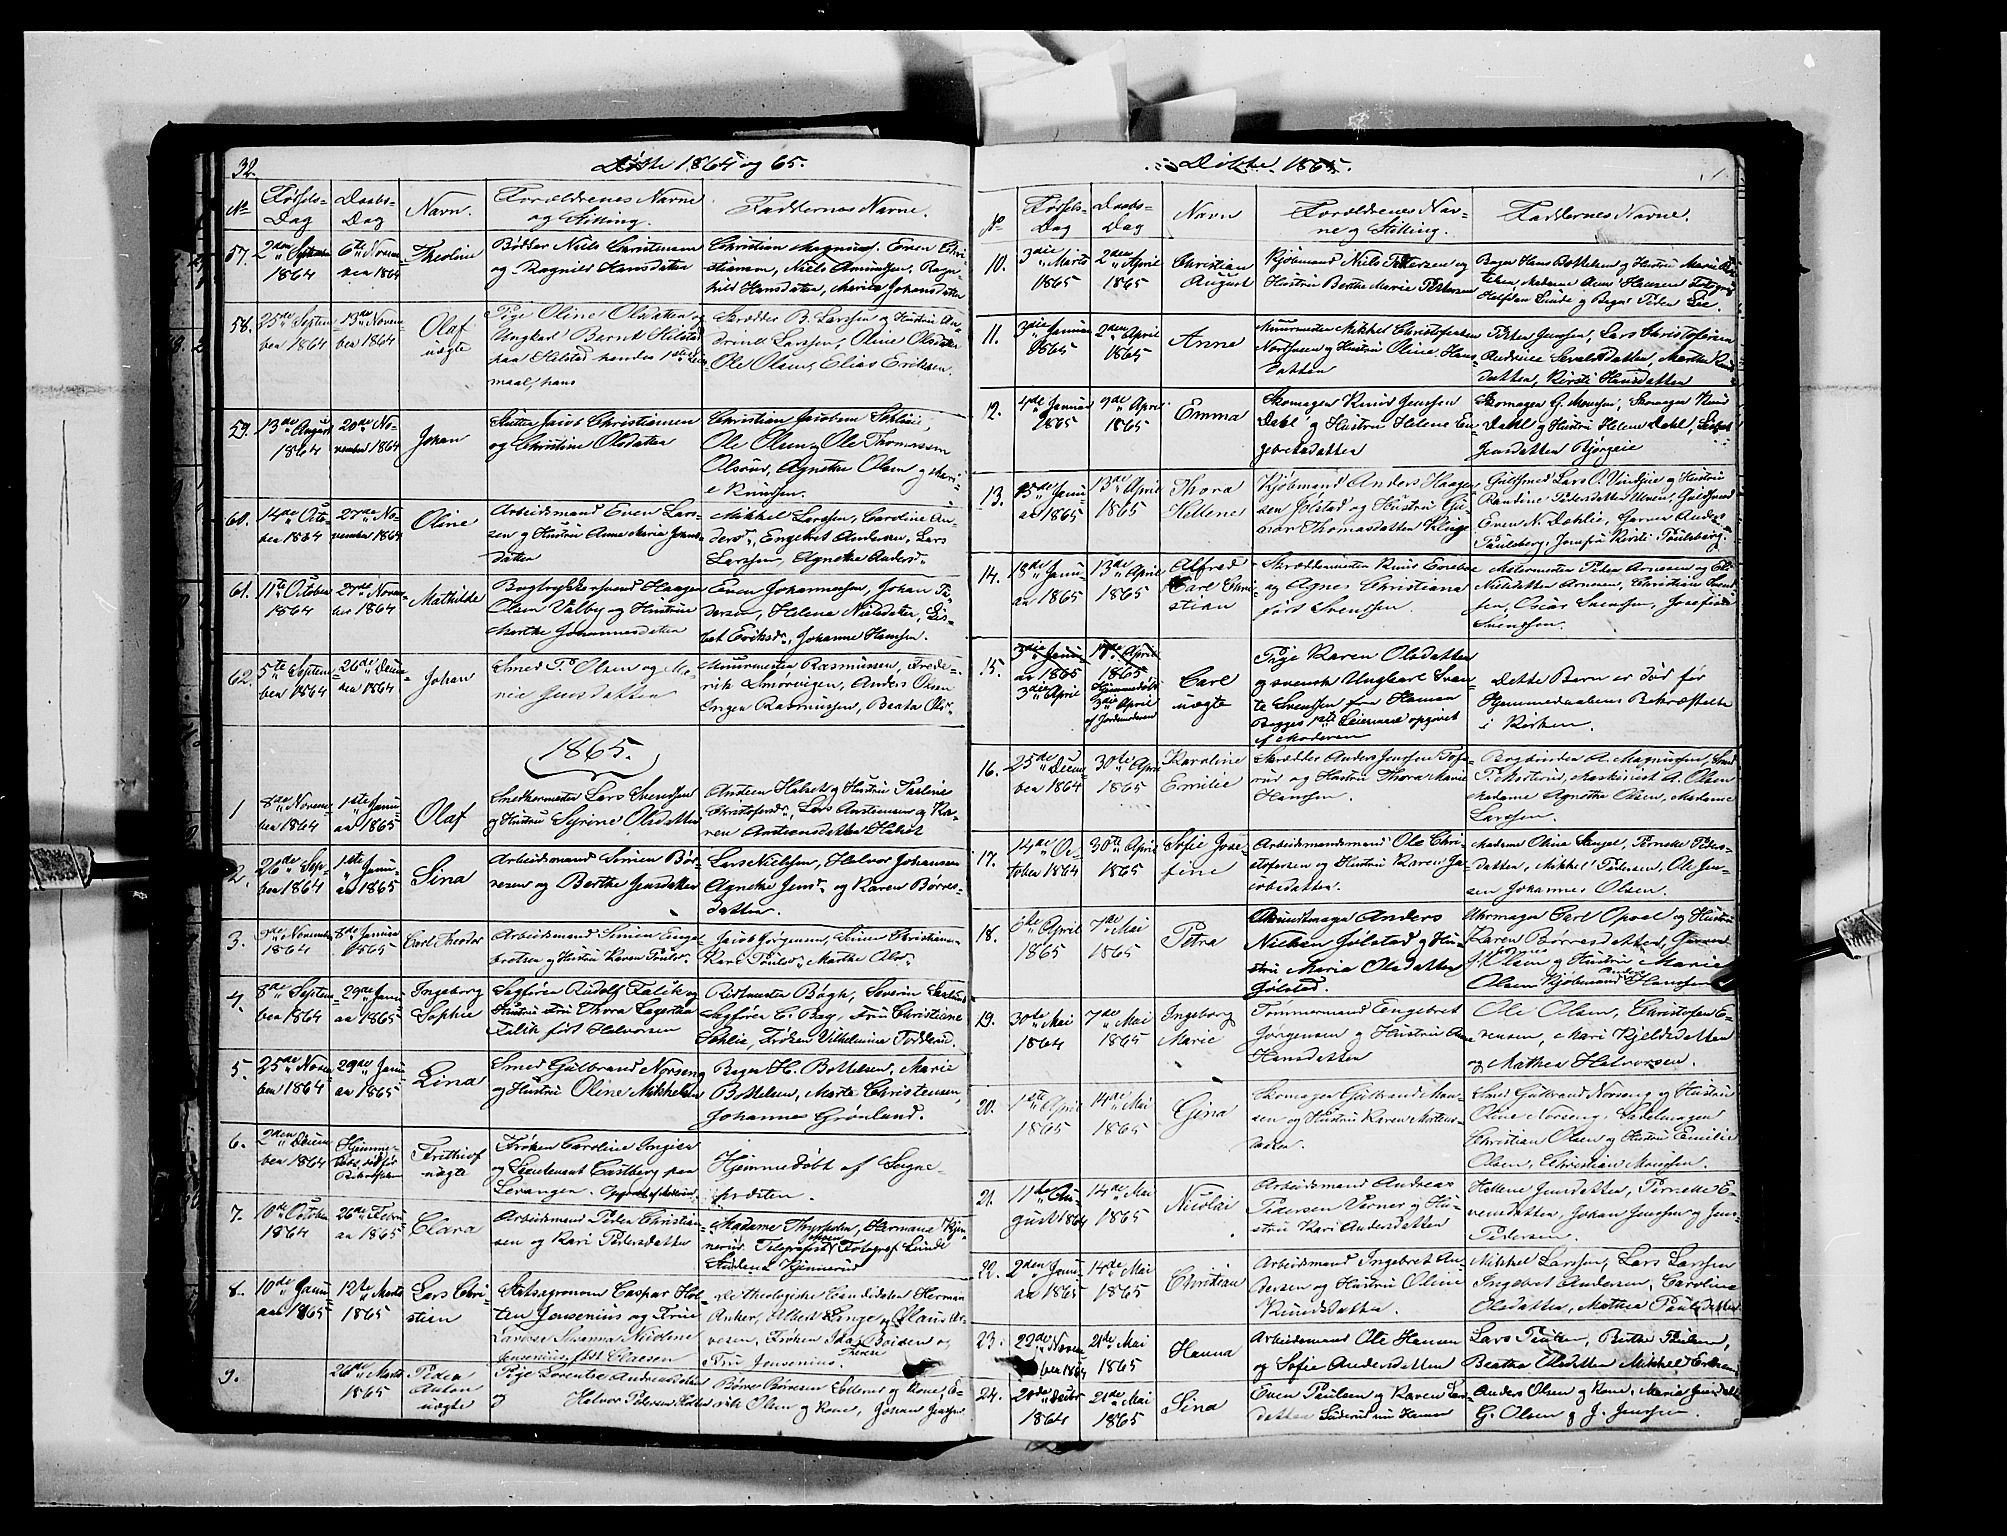 32.
Døbte 1864 og 65.
No
Fødsels-
Dag
Daabs-
Dag
Navn.
Forældrenes Navne
og Stilling.
Faddernes Navne.
57.
2den Septem
1864
6te Novem
ber 1864
Theoline
Bødker Niels Christensen
og Ragnild Hansdatter
Christian Magnus, Even Chri-
stiansen, Niels Amundsen, Ragn-
hild Hansdatter, Maria Johansdatter
58.
25de Septem
ber 1864
13de Novem
ber 1864
Olaf
uægte
Pige Oline Olsdatter og
Ungkarl Bernt Hilstad
paa Hilstad hendes 1ste Leier-
maal, hans
Skrædder B. Larssen og Hustru
Larssen, Oline Olsdatter
Ole Olsen, Elias Eriksen.
59.
13de August
1864
20de No-
vember 1864
Johan
Jacob Christiansen
og Christine Olsdatter
Christian Jacobsen
Ole Olsen, Ole Thomassen
Olsrud, Agnethe Olsen og Mari-
e Knudsen.
60.
14de Octo-
ber 1864
27de No-
vember 1864
Oline
Arbeidsmand Even Lars-
sen og Hustru Anne Marie Johans-
datter
Mikkel Larssen, Cardine An-
dersd., Engebret Andersen, Lars
Larssen, Agnethe Andersd.
61.
11te October
1864
27de Novem-
ber 1864
Mathilde
Bogtrykkersvend Haagen
Olsen Valby og Hustru
Marthe Johannesdatter
Even Johannessen, Johan Pe-
dersen, Helena Nielsdatter, Lis-
bet Eriksd., Johanne Hansen.
62.
5te Septem
ber 1864
26de Decem
ber 1864
Johan
Smed P. Olsen og Ma-
rie Jensdatter
Muurmester Rasmussen, Frede-
rik Smørvigen, Anders Olsen
Inger Rasmussen, Beata Olsd.
1865.
1
8de Novem
ber 1864
1ste Janu-
ar 1865
Olaf
Smedkermester Lars Svendsen
og Hustru Syrine Olsdatter
Anders Halset og Hustru Pauline
Christofersd., Lars Andersen og Ka-
ren Halset
2.
26de Sep-
ber 1864
1ste Janu-
ar 1865
Sina
Arbeidsmand Simen Bør-
resen og Berthe Jensdatter
Lars Nielsen, Halvor Johansen
Agnethe Jensd. og Karen Børres-
datter.
3.
9de November
1864
8de Januar
1865
Carl Theodor
Arbeidsmand Simen Enge-
bretsen og Hustru Karen Poulsd.
Jacob Jørgensen, Simen Christiansen
Kari Poulsd. Marthe Olsd.
4.
8de Septem
ber 1864
29de Janu
ar 1865
Ingeborg
Sophie
Sagfører Rudolf Falik og
Hustru Fru Thora Lagertha
Falik født Halvorsen
Ridtmester Bøgh, Severin
Sagfører C. Bay, Fru Christiane
Sohlie, Frøken Vilhelmine Todderud.
5.
25de Novem
ber 1864
29de Janu
ar 1865
Lina
Smed Gulbrand Norseng
og Hustru Oline Mikkelsen
Bager H. Bottelsen, Marie
Bottelsen, Marte Christensen,
Johannes Grønland.
6.
2den Decem
ber 1864
Hjemme-
døbt, død før
Bekræftelsen
Frithiof
uægte
Frøken Caroline
og Lieutenant Castberg paa
Levanger. Opgivet af Moderen
Hjemmedøbt af Sogne-
præsten.
7.
10de October
1864
26de Febru
ar 1865
Clara
Arbeidsmand Peder Christian-
sen og Kari Pedersdatter
Madame Thyrholm, Hermana Kjen-
nerud, Telegrafist Jensen, Fotograf Lunde
Kjennerud
8.
10de Janu-
ar 1865
12te Marts
1865
Lars Chri-
stien
Statsagronom Caspar Hol-
ten Jensenius og Frue
Susanna Nicoline
Jensenius, født Claesen
De theologiske Candidater Herman
Anker, Albert Lange og Olaus Ar-
vesen, Frøken Thrine Boiden og
Fru Jensenius.
9.
26de Marts
1865
Peder
Anton
uægte
Pige Lorentze Andreasdatter
og Halvor Pedersen
Børre Børresen og Kone, E-
rik Olsen og Kone, Johan Jensen
Døbte 1865.
No
Fødsels-
Dag
Daabs-
Dag
Navn
Forældrenes Nav-
ne og Stilling.
Faddernes Navne.
10.
3die Marts
1865
2den April
1865
Christian
August
Kjøbmand Niels Petersen og
Hustru Berthe Marie Petersen
Bager Hans Bottelsen og Hustru Marie
Madame Anne Hansen Fotograf
Halfdan Lunde og Bager Peder Lie.
11.
3die Januar
1865
2den April
1865
Anne
Muurmester Mikkel Christofersen
Nordseen og Hustru Oline Hans-
datter
Peter Jenssen, Lars Christofersen
Andrine Sevaldsdatter, Marthe Knuds-
datter, Kirsti Hansdatter
12.
4de Januar
1865
9de April
1865
Emma
Skomager Knud Jenssen
Dahl og Hustru Helene En-
gebretsdatter
Skomager G. Monsen, Skomager Knud
Dahl og Hustru Helene Dahl, Lisbet
Jensdatter Bjørgeie
13.
15de Janu-
ar 1865
13de April
1865
Thora
Hellene
Kjøbmand Anders Haagen-
sen Jølstad og Hustru Gu-
nor Thomasdatter Kluge
Guldsmed Lars O. Vindju og Hustru
Randine Pedersdatter Moen, Guldsmed
Even N. Dahlie, Garver Anders
Paulsberg, Jomfru Kirsti Paulsberg.
14.
18de Janu-
ar 1865
13de April
1865
Alfred
Carl Chri-
stian
Skræddermester Knud
og Agnes Christiana
født Svenssen
Malermester Peder Arnesen og
Nielsdatter Arnesen, Christian Svend-
sen, Oscar Svensen, Josefine
Svendsen.
15.
3die Janu-
ar 1865
3die April
17de April
1865
Hjemmedøbt
3die April
af Jordmoderen
Carl
uægte
Pige Karen Olsdatter
og svensk Ungkarl Svan-
te Svenssen fra Hamar
Begges 1ste Leiermaal opgivet
af Moderen
Dette Barn er død før
Hjemmedaabens Bekræftelse
i Kirken.
16.
25de Decem
ber 1864
30te April
1865
Karoline
Emilie
Skrædder Anders Jenssen Tofs-
rud og Hustru Thora Marie
Hanssen.
Bogbinder A. Magnussen, Smed
P. Mostrue, Maskinist A. Olsen
Madame Agnethe Olsen, Madame
Larssen.
17.
14de Oc-
tober 1864
30te April
1865
Sofie Jose-
fine
Arbeidsmandsmand Ole Chri-
stofersen og Hustru Karen Ja-
cobsdatter.
Madam Oline Lengel, Pernelle Peders-
datter, Mikkel Pedersen, Ole Jen-
sen Johannes Olsen.
18.
6te April
1865
7de Mai
1865
Petra
Anders
Nielsen Jølstad og Hu-
stru Maria Olsdatter
Jølstad.
Uhrmager Carl Opsal og Hustru
Karen Børresdatter,
Olsen og Hustru Marie
Olsen Kjøbmand Hanssen
19.
30te Mai
1864
7de Mai
1865
Ingeborg
Marie
Tømmermand Engebret
Jørgensen og Hustru Anne
Hansdatter
Ole Olsen, Christofer E-
vensen, Mari Kjeldsdatter
og Mathea Halvorsen.
20.
1ste April
1865
14de Mai
1865
Gina
Skomager Gulbrand Mon-
sen og Hustru Karen Mortens-
datter
Smed Gulbrand Norseng og Hustru
Oline Norseng, Sadelmager
Christian Olsen og Hustru Emilie
Olsen, Christian Monsen.
21.
11te Au-
gust 1864
14de Mai
1865
Nicolai
Arbeidsmand Andreas
Pedersen Verner og Hu-
stru Kari Andersdatter
Hellene Jensdatter, Pernelle E-
vensdatter, Johan Jenssen og Jens
Pedersen.
22.
2den Janu-
ar 1865
14de Mai
1865
Christian
Arbeidsmand Ingebret An-
dersen og Hustru Oline
Knudsdatter.
Mikkel Larssen, Lars Larssen
Ingebret Andersen, Caroline
Olsdatter, Mathea Paulsdatter
23.
22de Novem
ber 1864
21de Mai
1865
Hanna
Arbeidsmand Ole Hansen
og Sofie Andersdatter
Lars Poulsen, Berthe Poulsen,
Beathe Olsdatter Mikkel Eriksen
24.
20de Decbr
1864
21de Mai
1865
Sina
Even Paulsen og Karen Lars-
datter
Anders Olsen og Kone, Marie Jensdatter
G. Olsen og J. Jenssen.